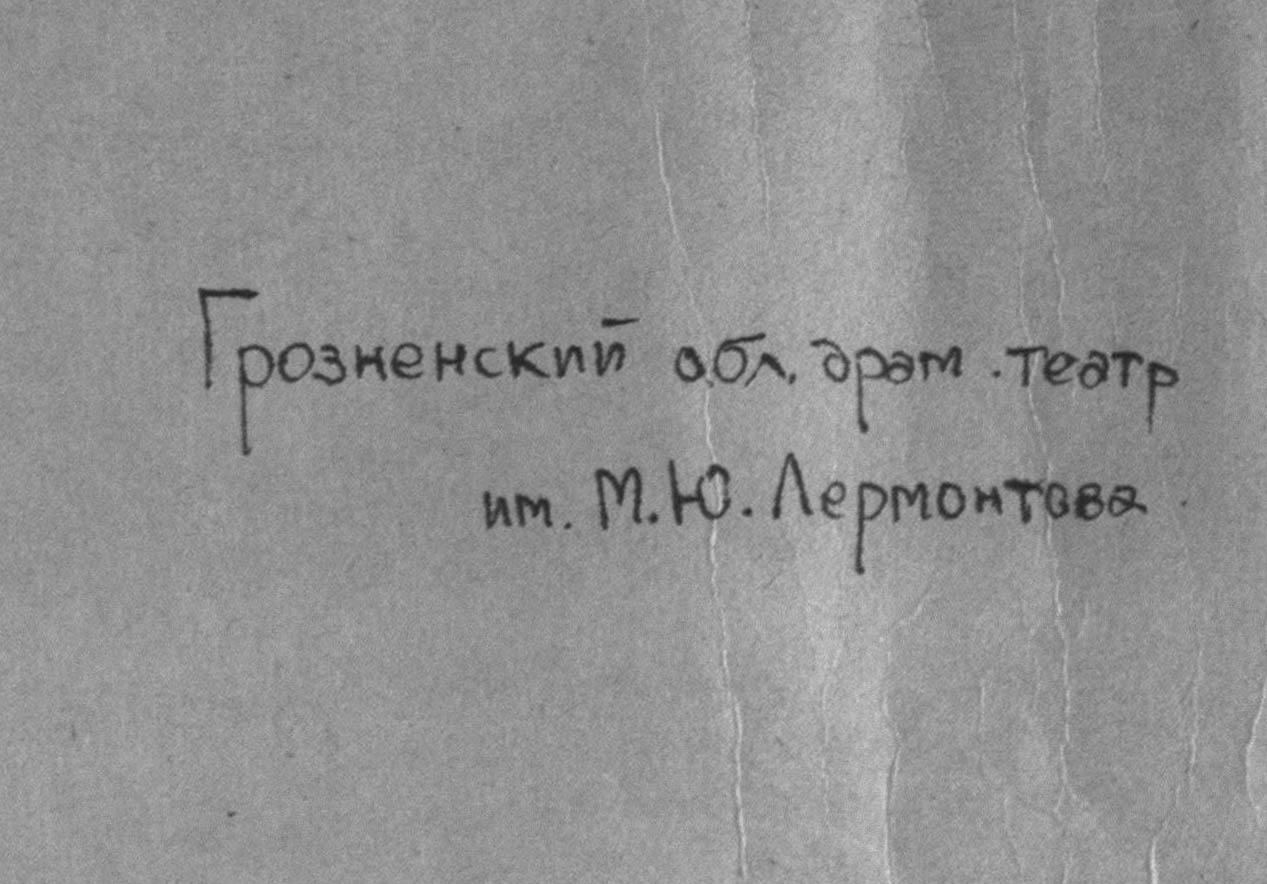 Грозненский обл. драм. театр
им. М.Ю. Лермонтова